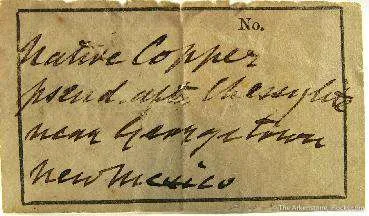 No.
Native Copper
pseud. after Chessylite
near Georgetown
New Mexico
© The Arkenstone, iRocks.com